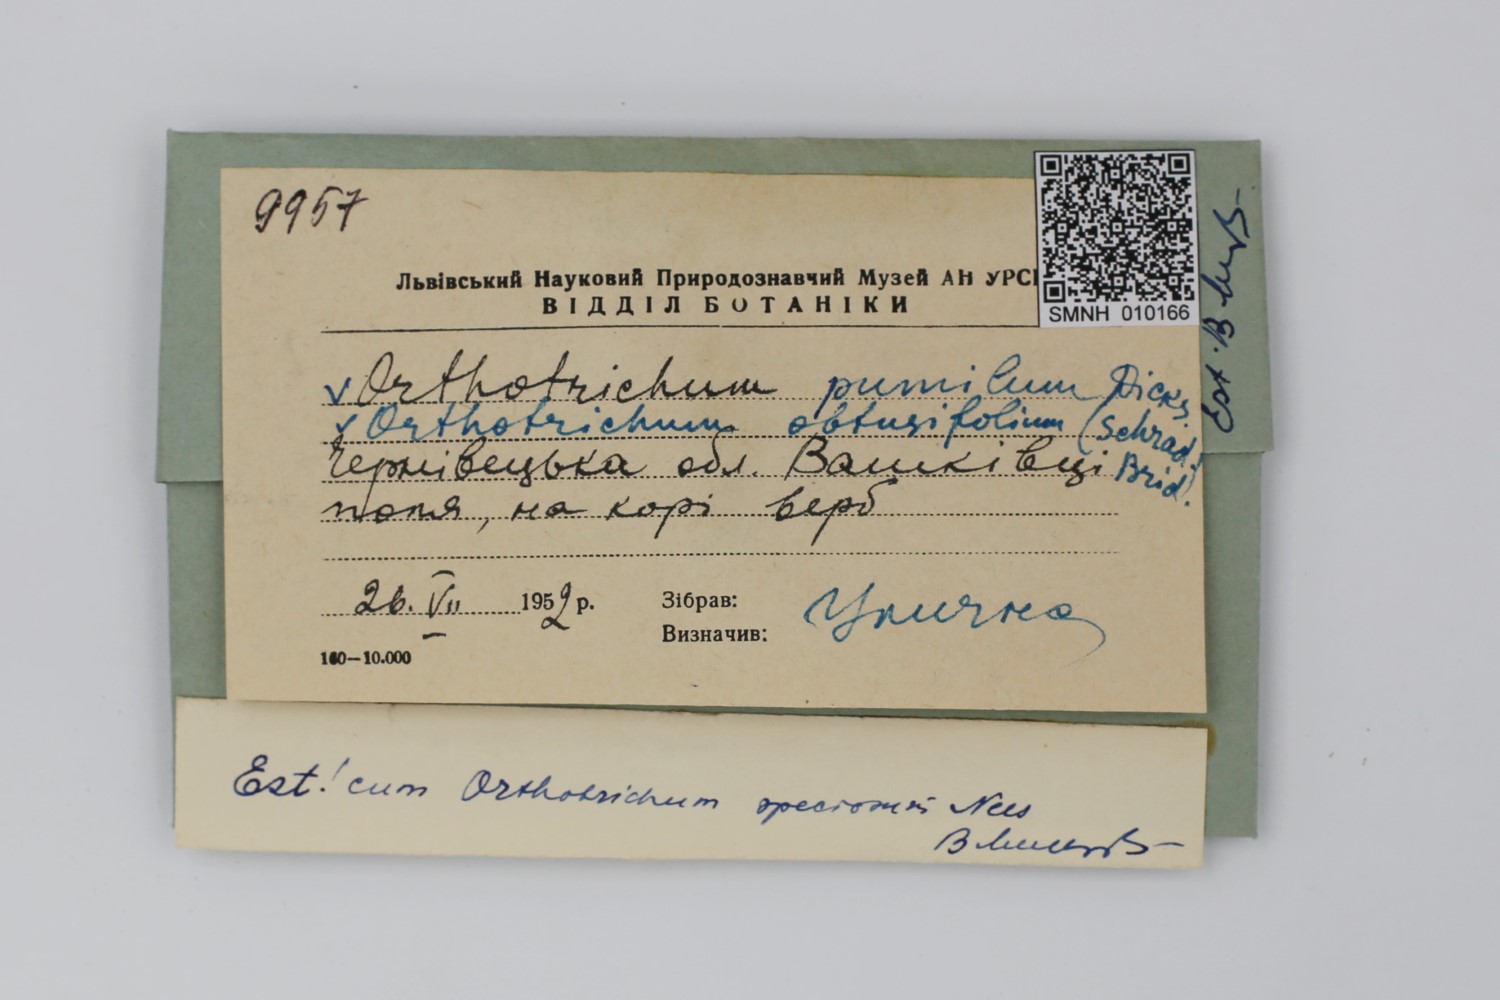 9957
Львівський Науковий Природознавчий Музей АН УРС
ВІДДІЛ БОТАНІКИ
SMNH 010166
v Orthotrichum pumilum Dicks
v Orthotrichum obtusifolium (Schrad.) Brid.
Чернівецька обл. Вашківці
поля, на корі верб
26. VII 1952 р.
Зібрав:
Визначив: Улична
100—10.000
Est. В
Est! cum Orthotrichum speciosum Nees
В